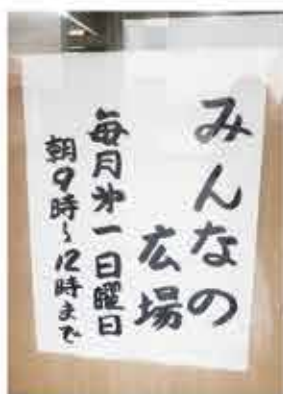 みんなの
広場
毎月第一日曜日
朝9時～12時まで